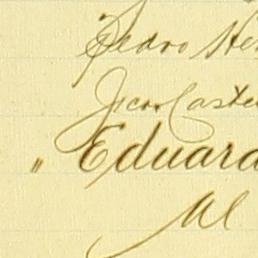 Pedro He
Juan Caste
" Eduard
Al